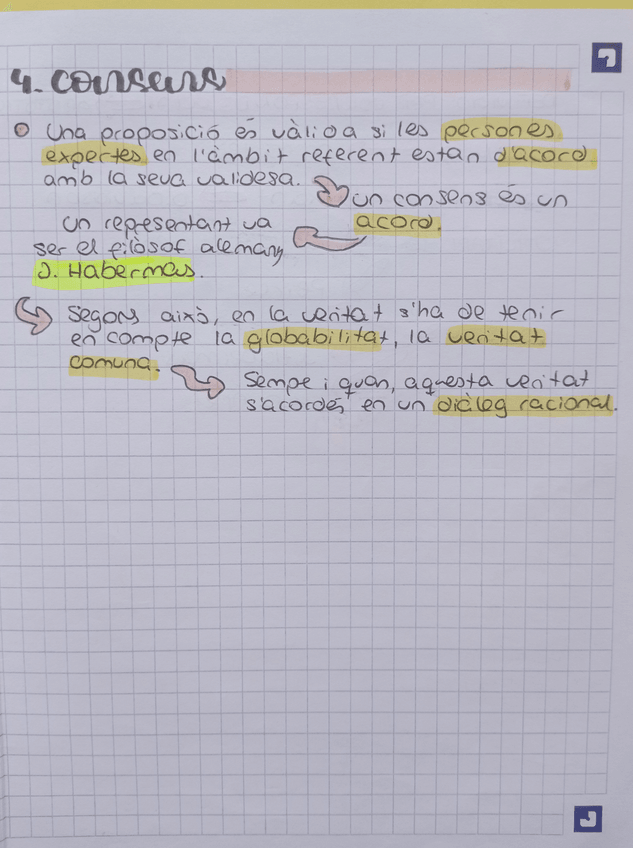 4. consens
Una proposició és vàlida si les persones
expertes en l'àmbit referent estan d'acord
amb la seva validesa.
un consens és un
acord.
Un representant va
ser el filòsof alemany
J. Habermas.
Segons això, en la veritat s'ha de tenir
en compte la globabilitat, la veritat
comuna.
Sempe i quan, aquesta veritat
s'acordés en un diàleg racional.